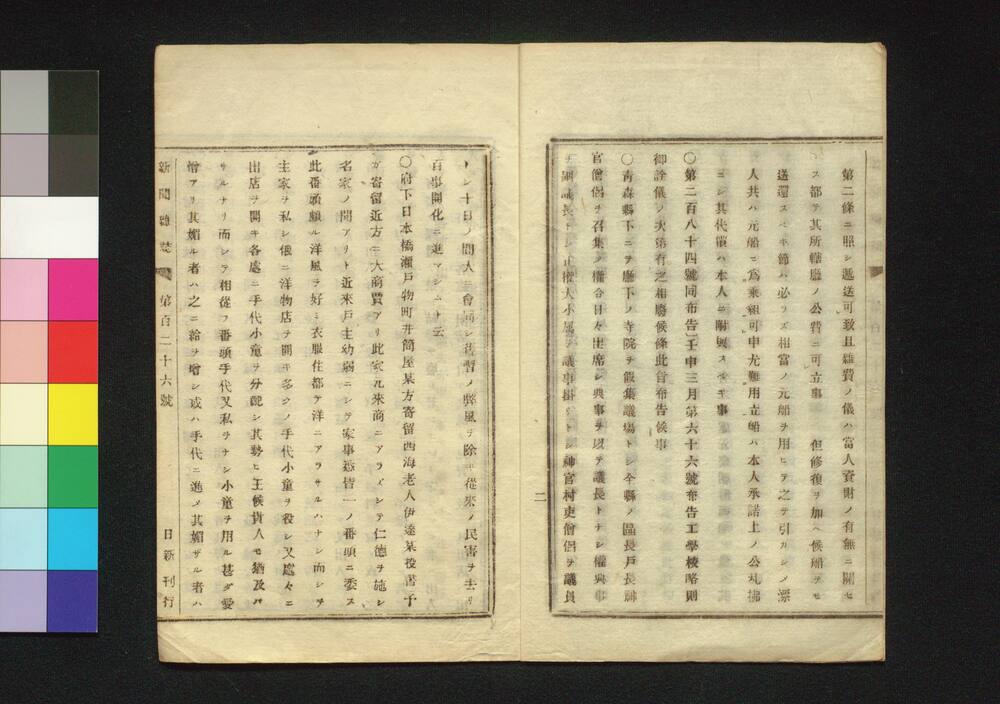 第二條ニ照シ遞送可致且雜費ノ儀ハ當人資財ノ有無ニ關セ
ス都テ其所轄廳ノ公費ニ可立事　但修復ヲ加ヘ候船ヲモ
送還スヘキ節ハ必ラズ相當ノ元船ヲ用ヒテ之ヲ引カシメ漂
人共ハ元船ニ爲乘組可申尤難用立船ハ本人承諾上ノ公札拂
ニシ其代價ハ本人ニ附與スヘキ事
〇第二百八十四號同布告壬申三月第六十六號布告工學校略則
御詮儀ノ次第有之相廢候條此旨布告候事
〇青森縣下ニヲテ廳下ノ寺院ヲ假集議場トシ今縣ノ區長戸長神
官僧侶ヲ召集ノ權令日々出席シ典事ヲ以テ議長トナシ權典事
ヲ副議長トシ正權大小屬ヲ議事掛リトシ神官村吏僧侶ヲ議員
二
トシ十日ノ間人ニ會同シ舊習ノ弊風ヲ除キ從來ノ民害ヲ去リ
百事開化ニ進マシムト云
〇府下日本橋瀬戸物町井筒屋某方寄留西海老人伊達某投書予
ガ寄留近方ニ大商賈アリ此家元來商ニアラズシテ仁德ヲ施シ
名家ノ聞アリト近來戸主幼弱ニシテ家事悉皆一ノ番頭ニ委ス
此番頭頗ル洋風ヲ好ミ衣服住都テ洋ニアラサルハナシ而シテ
主家ヲ私シ俄ニ洋物店ヲ開キ多クノ手代小童ヲ役シ又處々ニ
出店ヲ開キ各處ニ手代小童ヲ分配シ其勢ヒ王侯貴人モ猶及バ
サルナリ而シテ相從フ番頭手代又私ヲナシ小童ヲ用ル甚ダ愛
憎アリ其媚ル者ハ之ニ給ヲ增シ或ハ手代ニ進メ其媚ザル者ハ
新聞雜誌　第百二十六號　日新刊行